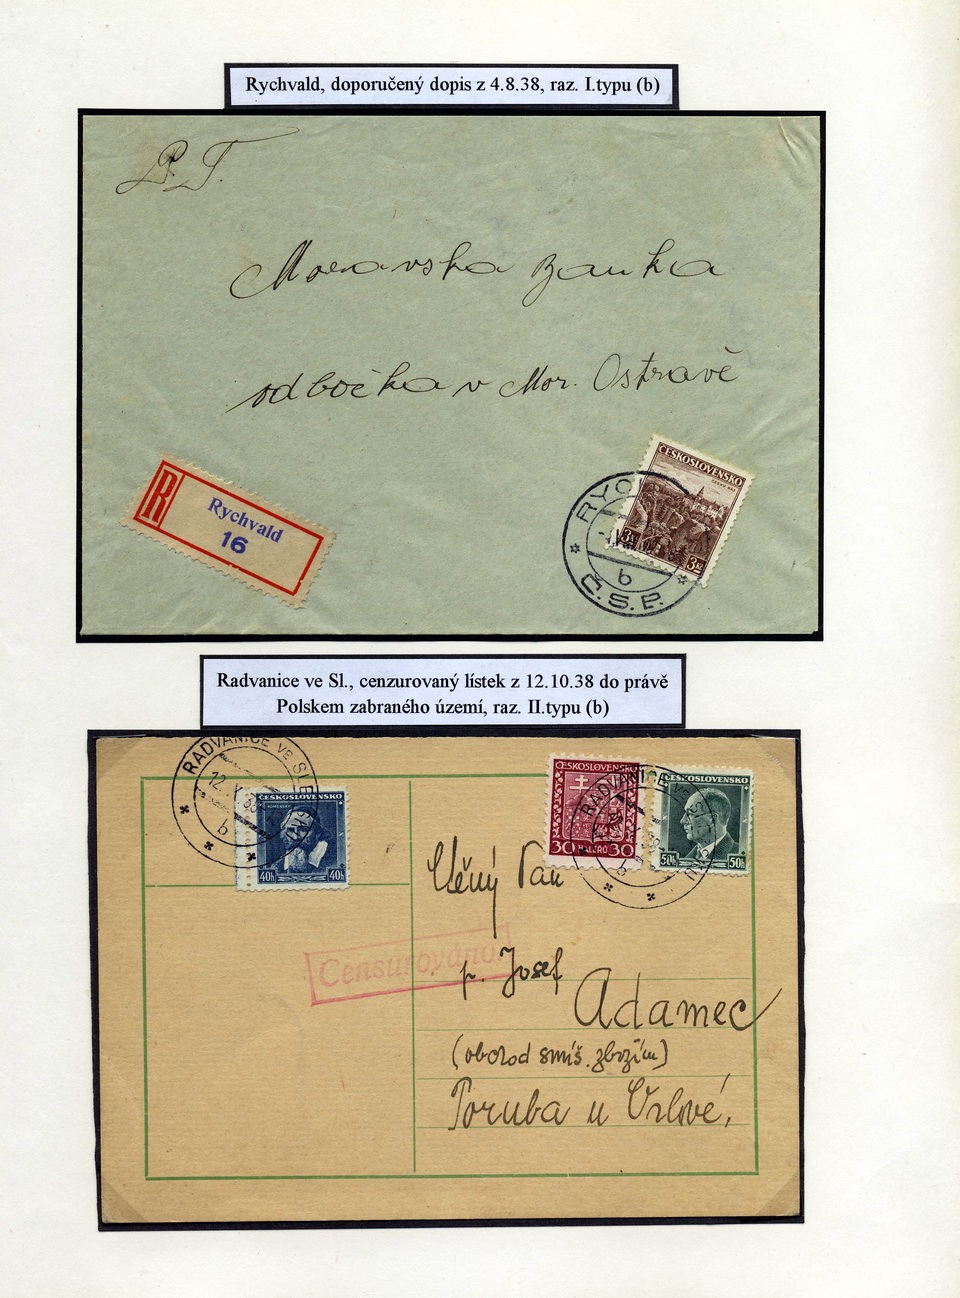 Rychvald, doporučený dopis z 4.8.38, raz. I.typu (b)
P. T.
Moravska banka
odbočka v Mor. Ostravě
R
Rychvald
16
ČESKOSLOVENSKO
3
3
RYCH
b
Č.S.P.
Radvanice ve Sl., cenzurovaný lístek z 12.10.38 do právě
Polskem zabraného území, raz. II.typu (b)
RADVANICE VE SL
12. X
b
ČESKOSLOVENSKO
40h 40h
ČESKOSLOVENSKO
30 HALÉŘŮ 30
ČESKOSLOVENSKO
50h 50h
RADVANICE VE SL
b
Ctěný Pan
Censurováno.
p. Josef
Adamec
(obchod smíš. zbožím)
Poruba u Orlové,